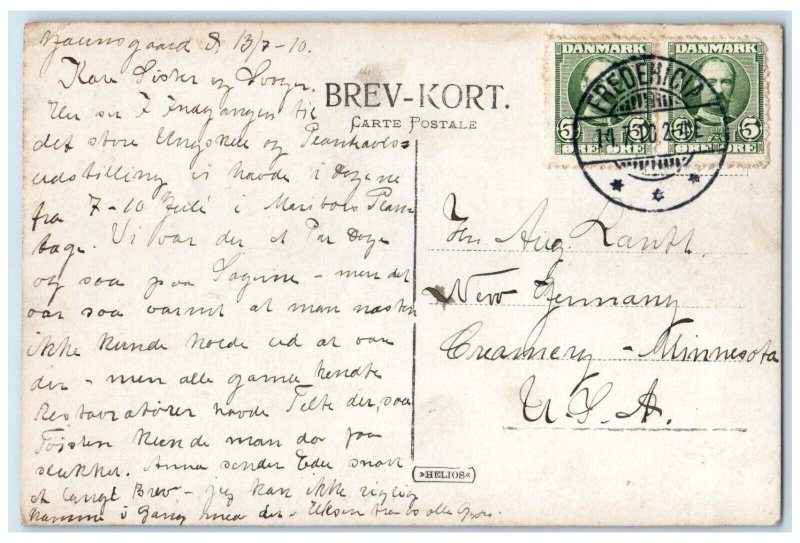 d. 13/7-10.
Kære Søster og Svoger.
Her ser I Indgangen til
det store Ungskue og Plantravls-
udstilling vi havde i Dagene
fra 7-10 Juli i Plan-
tage. Vi var der et Par Dage
og saa paa Sagerne - men det
var saa varmt at man næsten
ikke kunde holde ud at være
der - men alle gamle kendte
Restauratører havde Telte der, saa
Tørsten kunde man da faa
slukket. Anna sender Eder snart
et langt Brev - jeg kan ikke rigtig
komme i Gang med det - Hilsen fra os alle
BREV-KORT.
CARTE POSTALE
DANMARK DANMARK
5 ØRE ØRE 5
FREDERICIA
14.7.10
Hr. Aug. Lauth.
New Germany
Creamery - Minnesota
U.S.A.
»HELIOS«